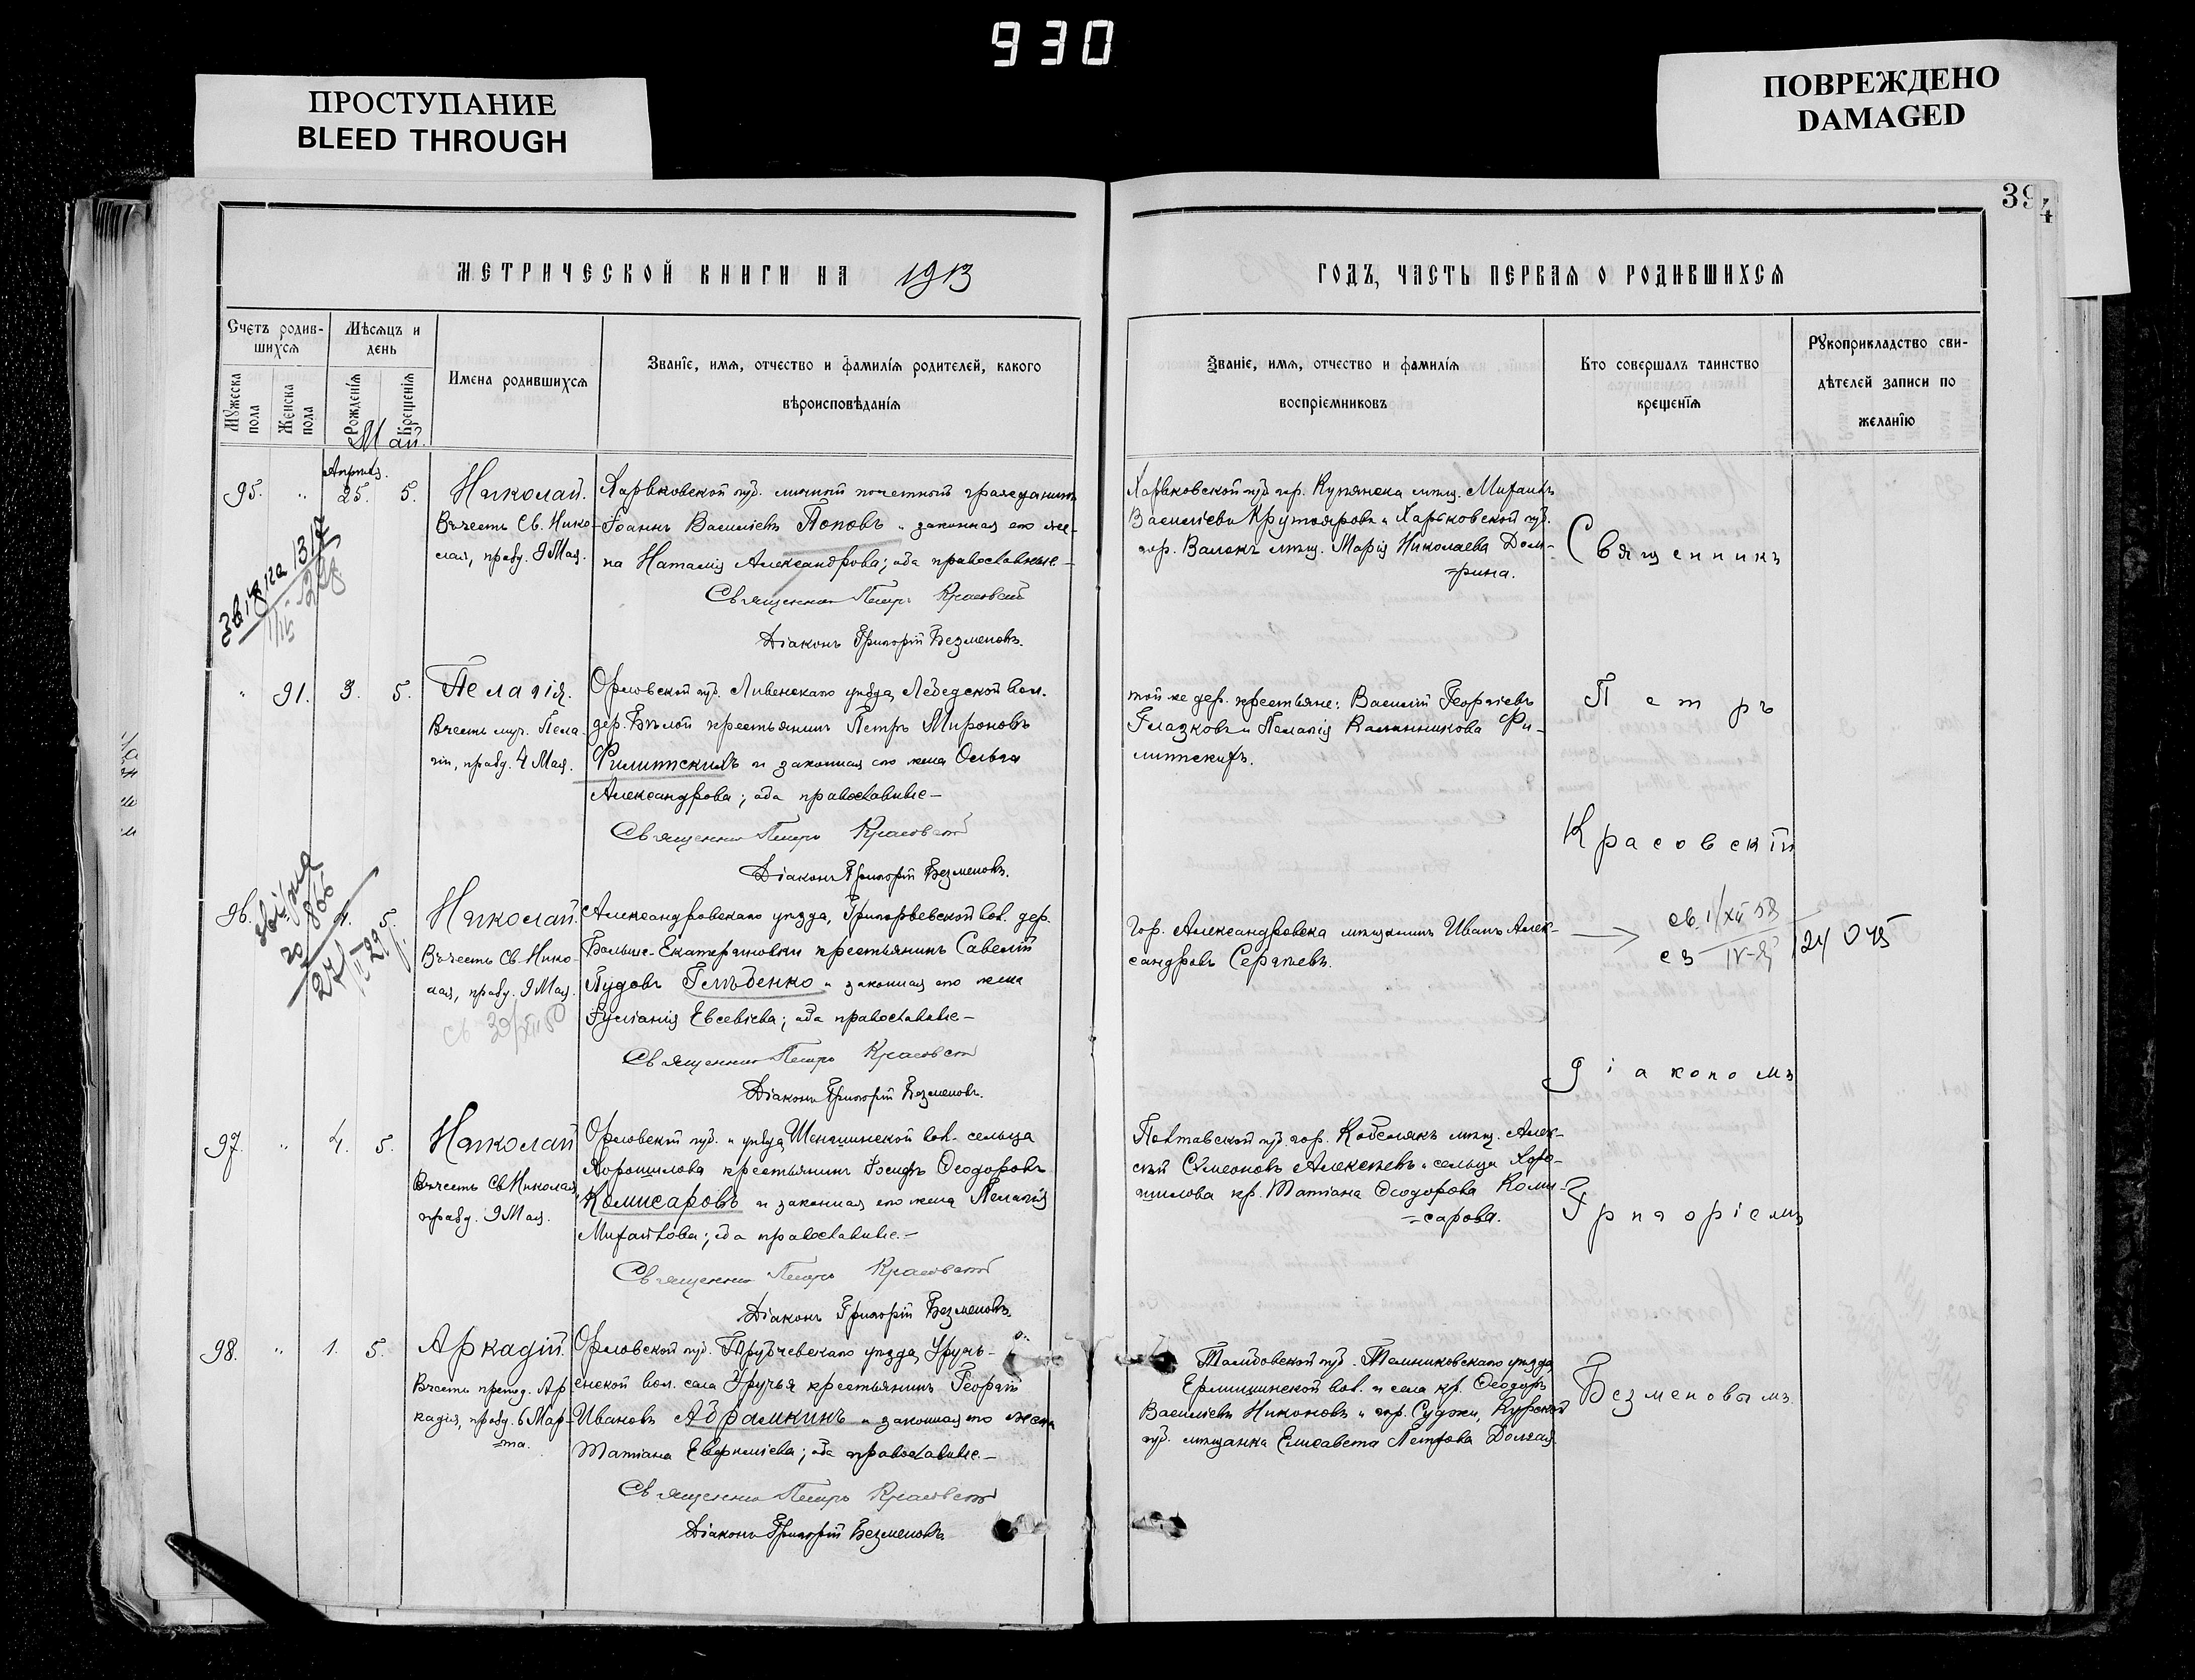 930
ПРОСТУПАНИЕ
BLEED THROUGH
ПОВРЕЖДЕНО
DAMAGED
394
МЕТРИЧЕСКОЙ КНИГИ НА 1913
Счетъ родив-
шихся
Мѣсяцъ и
день
Мужеска пола
Женска пола
Рожденія
Крещенія
Имена родившихся
Званіе, имя, отчество и фамилія родителей, какого
вѣроисповѣданія
Май.
Апрѣль.
95. " 25. 5.
Николай.
Въ честь Св. Нико-
лая, празд. 9 Мая.
Харьковской губ. личный почетный гражданинъ
Іоаннъ Василіевъ Поповъ и законная его же-
на Наталія Александрова; оба православные.—
Священникъ Петръ Красовскій
Діаконъ Григорій Безменовъ.
" 91. 3. 5.
Пелагія.
Въ честь муч. Пела-
гіи, празд. 4 Мая.
Орловской губ. Ливенскаго уѣзда, Лебедской вол.
дер. Бѣлой крестьянинъ Петръ Мироновъ
Филипскихъ и законная его жена Ольга
Александрова; оба православные—
Священникъ Петръ Красовскій
Діаконъ Григорій Безменовъ.
96. 4. 5.
Николай.
Въ честь Св. Нико-
лая, празд. 9 Мая.
Александровскаго уѣзда, Григорьевской вол. дер.
Больше-Екатериновки крестьянинъ Савелій
Пудовъ Голубенко и законная его жена
Іуліанія Евсевіева; оба православные—
Священникъ Петръ Красовскій
Діаконъ Григорій Безменовъ.
97. " 4. 5.
Николай
Въ честь Св. Николая
празд. 9 Мая.
Орловской губ. и уѣзда, Шеншинской вол. сельца
Хорошилова крестьянинъ Іосифъ Ѳеодоровъ
Комисаровъ и законная его жена Пелагія
Михайлова; оба православные.—
Священникъ Петръ Красовскій
Діаконъ Григорій Безменовъ.
98. " 1. 5.
Аркадій.
Въ честь препод. Ар-
кадія, празд. 6 Мар-
=та.
Орловской губ. Трубчевскаго уѣзда, Уручь-
енской вол. села Уручья крестьянинъ Георгій
Ивановъ Абрамкинъ и законная его жена
Татіана Евфиміева; оба православные.—
Священникъ Петръ Красовскій
Діаконъ Григорій Безменовъ
ГОДЪ, ЧАСТЬ ПЕРВАЯ О РОДИВШИХСЯ
Званіе, имя, отчество и фамилія
воспріемниковъ
Кто совершалъ таинство
крещенія
Рукоприкладство сви-
дѣтелей записи по
желанію
Харьковской губ. гор. Купянска мѣщ. Михаилъ
Василіевъ Крутояровъ и Харьковской губ.
гор. Валокъ мѣщ. Марія Николаева Дом-
=рина.
той же дер. крестьяне: Василій Георгіевъ
Глазковъ и Пелагія Калинникова Фи-
липскихъ.
Гор. Александровска мѣщанинъ Иванъ Алек-
сандровъ Сергѣевъ.
Полтавской губ. гор. Кобелякъ мѣщ. Алек-
сѣй Сѵмеоновъ Алексѣевъ и сельца Хоро-
шилова кр. Татіана Ѳеодорова Коми-
=сарова.
Тамбовской губ. Темниковскаго уѣзда
Ермишинской вол. и села кр. Ѳеодоръ
Василіевъ Никоновъ и гор. Суджи, Курской
губ. мѣщанка Елисавета Петрова Долгая.
Священникъ
Петръ
Красовскій
св. 1/XII 58
діакономъ
Григоріемъ
Безменовымъ